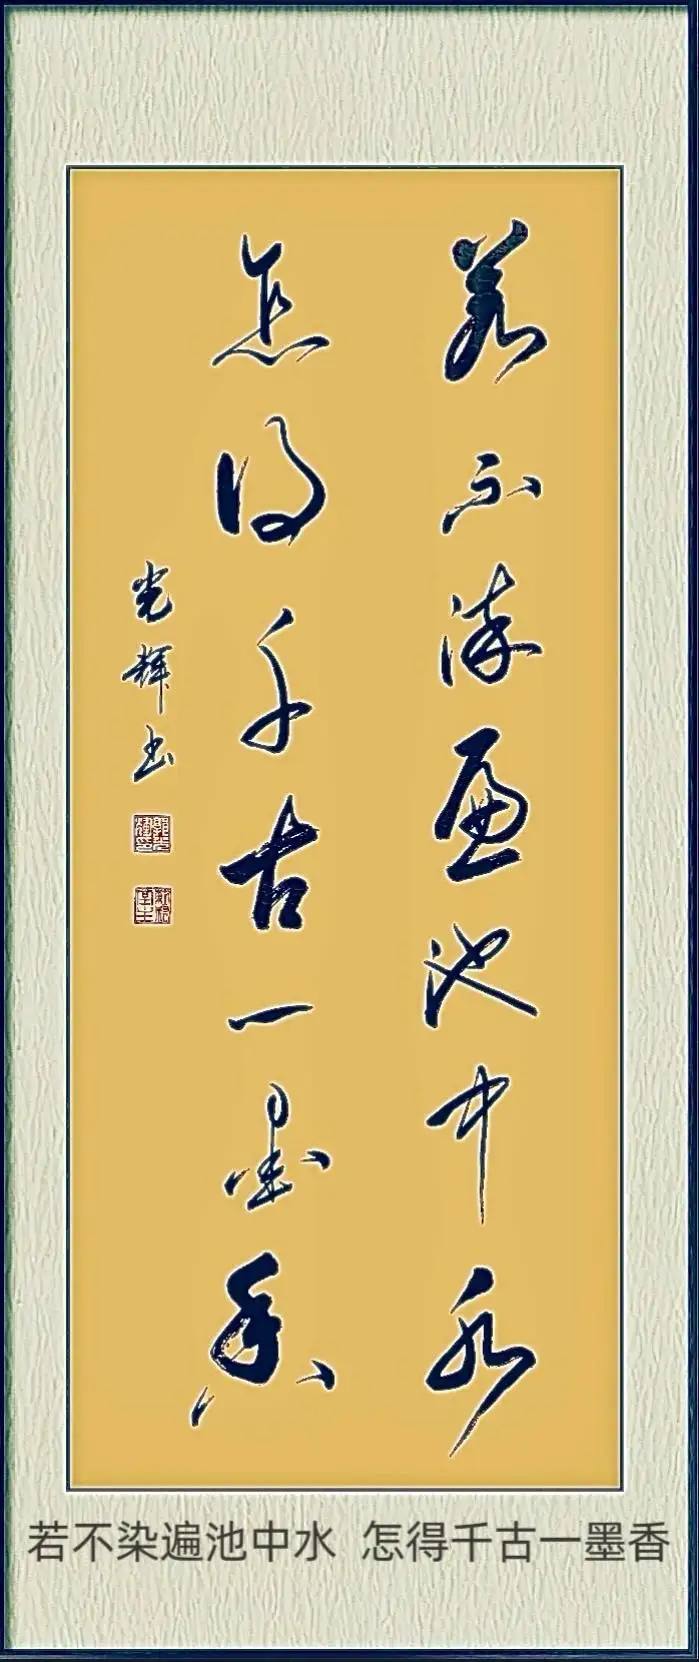 若不染遍池中水
怎得千古一墨香
光辉书
若不染遍池中水 怎得千古一墨香